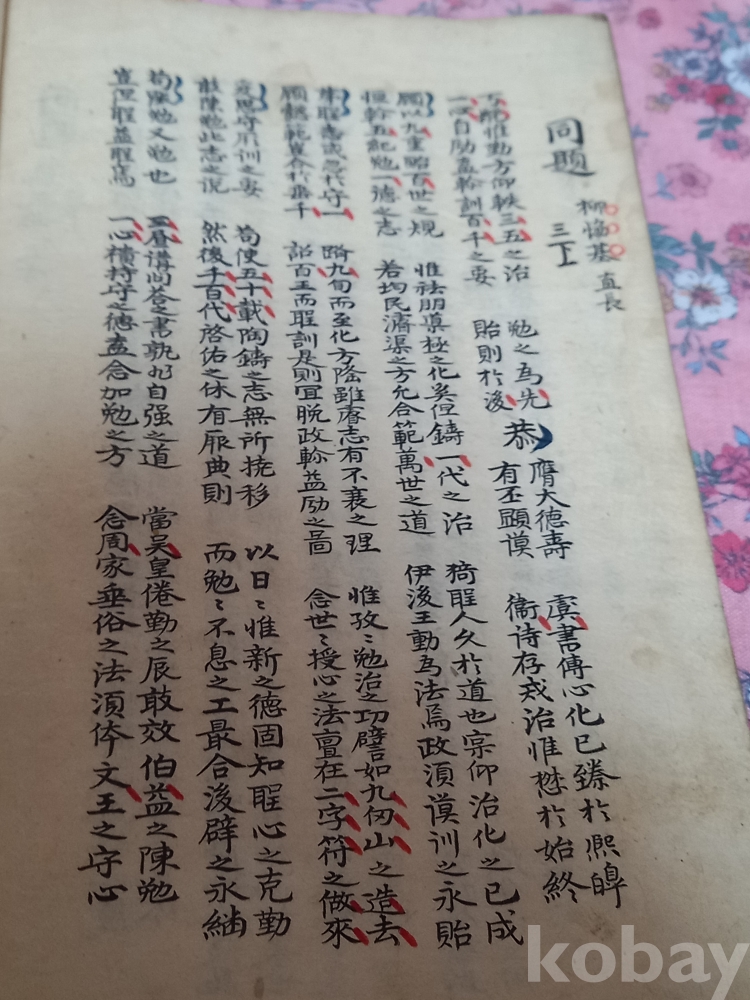 同題
柳 基 直長
三下
惟勤方仰軼三五之治
一 自勖盍軫訓百千之要
勉之為先
貽則於後
恭
膺大德壽
有丕顯謨
虞書傳心化已臻於熙皡
衛詩存戒治惟懋於始終
顧以九重貽百世之規
恒軫五紀勉一德之志
惟 朋 極之化奚但鑄一代之治
若均民濟渠之方允合範萬世之道
猗聖人久於道也宗仰治化之已成
伊後王動為法焉政須謨訓之永貽
聖 戒忽於守一
顧懿範 合於垂千
階九旬而至化方隆雖睿志有不衰之理
詔百王而聖訓是則宜 政軫益勵之啚
惟孜〻勉治之功譬如九仞山之造去
念世〻授心之法亶在二字符之做來
爰思守用訓之要
敢陳勉此志之說
苟使五十載陶鑄之志無所撓移
然後千百代啓佑之休有厥典則
以日〻惟新之德固知聖心之克勤
而勉〻不息之工最合後辟之永緬
苟陳勉又勉也
豈但聖益聖焉
三晝講問答之書孰如自强之道
一心 持守之德盍念加勉之方
當吳皇倦勤之辰敢效伯益之陳勉
念周家垂俗之法須体文王之守心